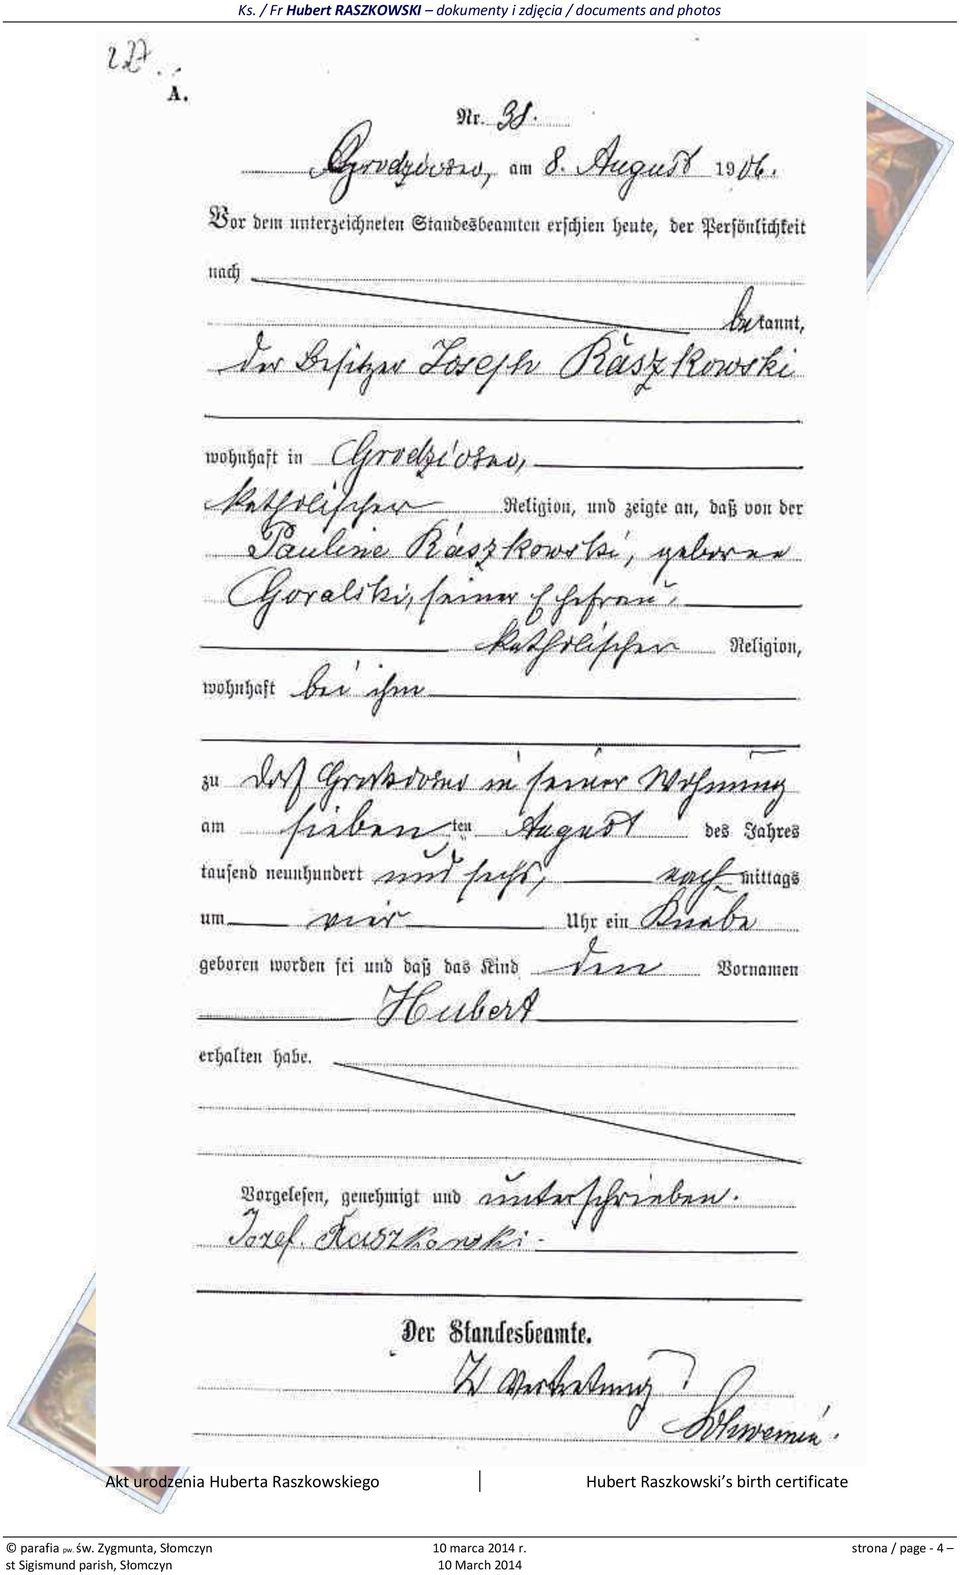 Ks. / Fr Hubert RASZKOWSKI – dokumenty i zdjęcia / documents and photos
A.
Nr. 38.
Grodziczno, am 8. August 1906.
Vor dem unterzeichneten Standesbeamten erschien heute, der Persönlichkeit
nach
bekannt,
der Besitzer Joseph Raszkowski
wohnhaft in Grodziczno,
katholischer Religion, und zeigte an, daß von der
Pauline Raszkowski, geborene
Goralski, seiner Ehefrau,
katholischer Religion,
wohnhaft bei ihm
zu in seiner Wohnung
am siebenten August des Jahres
tausend neunhundert und sechs, nachmittags
um vier Uhr ein Knabe
geboren worden sei und daß das Kind den Vornamen
Hubert
erhalten habe.
Vorgelesen, genehmigt und unterschrieben.
Jozef Raszkowski
Der Standesbeamte.
Vertretung
Akt urodzenia Huberta Raszkowskiego Hubert Raszkowski's birth certificate
© parafia pw. św. Zygmunta, Słomczyn 10 marca 2014 r. strona / page - 4 –
st Sigismund parish, Słomczyn 10 March 2014